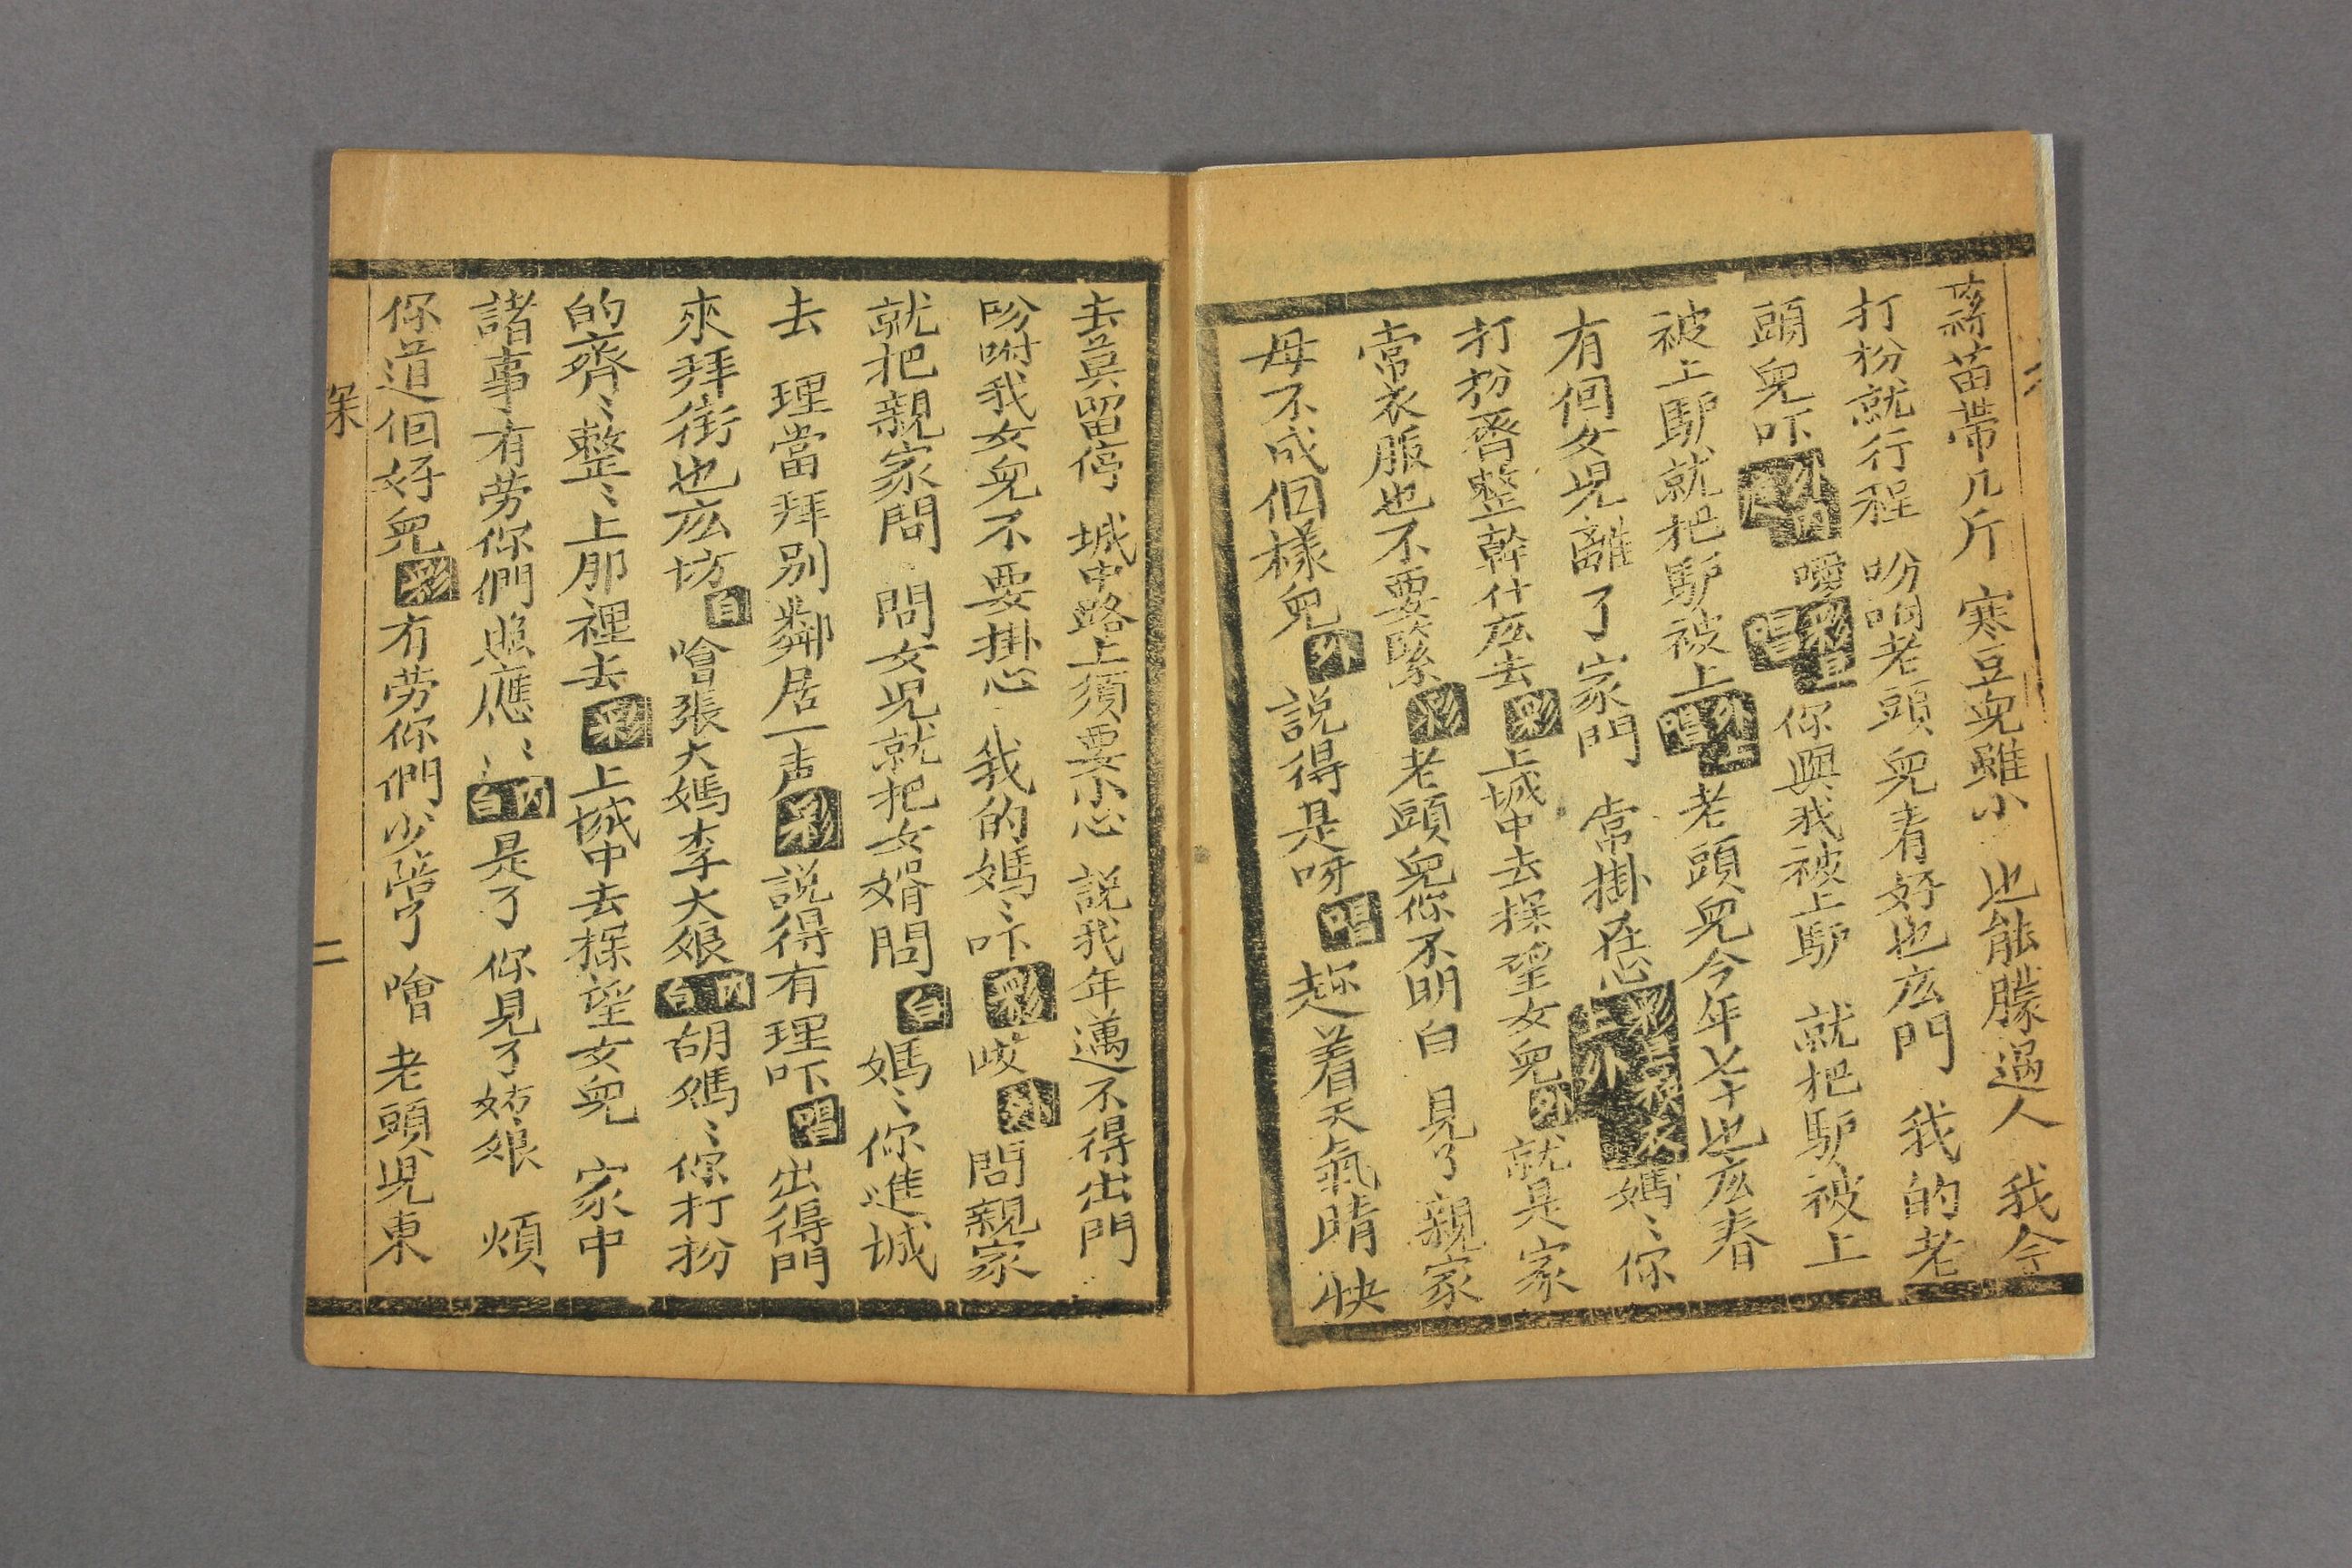 蒜苗帶几斤 寒豆兒雖小 也能朦過人 我今
打扮就行程 吩咐老頭兒看好也庅門 我的老
頭兒吓 噯 你與我被上馿 就把馿被上
被上馿就把馿被上 老頭兒今年七十也庅春
有個女兒離了家門 常掛在心 媽〻你
打扮齊整幹什庅去 彩 上城中去探望女兒 外 就是家
常衣服也不要緊 彩 老頭兒你不明白 見了親家
母不成個樣兒 外 說得是呀 唱 趂着天氣晴快
去莫留停 城中路上須要小心 說我年邁不得出門
吩咐我女兒不要掛心 我的媽〻吓 彩 咬 外 問親家
就把親家問 問女兒就把女婿問 白 媽〻你進城
去 理當拜別鄰居一声 彩 說得有理吓 唱 出得門
來拜街也庅坊 白 噲張大媽李大娘 內白 胡媽〻你打扮
的齊〻整〻上那裡去 彩 上城中去探望女兒 家中
諸事有劳你們照應〻〻 內白 是了你見了姑娘 煩
你道個好兒 彩 有劳你們少賠了 噲 老頭兒東
探
二